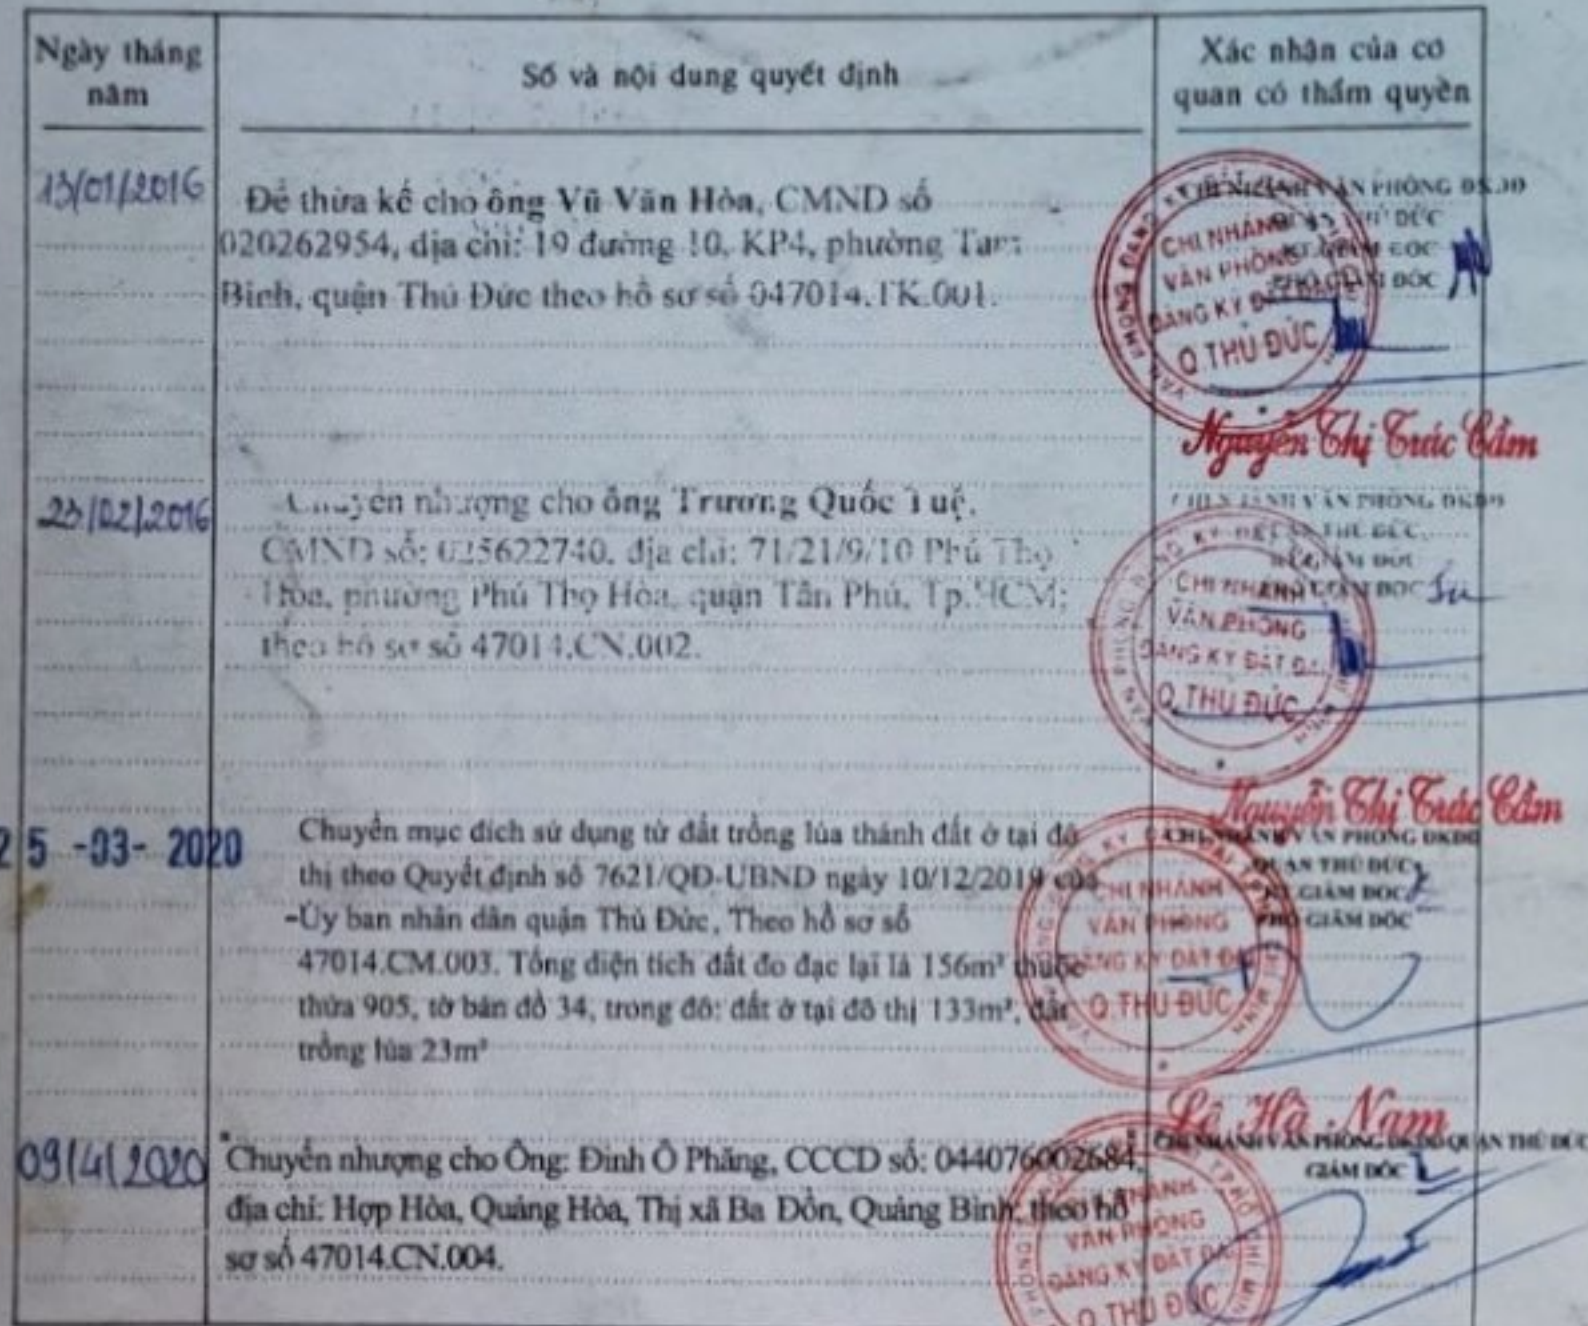 Ngày tháng
năm
Số và nội dung quyết định
Xác nhận của cơ
quan có thẩm quyền
13/01/2016
Để thừa kế cho ông Vũ Văn Hòa, CMND số
020262954, địa chỉ: 19 đường 10, KP4, phường Tam
Bình, quận Thủ Đức theo hồ sơ số 047014.TK.001.
CHI NHÁNH VĂN PHÒNG ĐKĐĐ
CHI NHÁNH
VĂN PHÒNG
ĐĂNG KÝ ĐẤT ĐAI
Q. THỦ ĐỨC
Nguyễn Thị Trúc Cầm
23/02/2016
Chuyển nhượng cho ông Trương Quốc Tuệ,
CMND số: 025622740, địa chỉ: 71/21/9/10 Phú Thọ
Hòa, phường Phú Thọ Hòa, quận Tân Phú, Tp.HCM;
theo hồ sơ số 47014.CN.002.
CHI NHÁNH VĂN PHÒNG ĐKĐĐ
CHI NHÁNH
VĂN PHÒNG
ĐĂNG KÝ ĐẤT ĐAI
Q. THỦ ĐỨC
Nguyễn Thị Trúc Cầm
25 -03- 2020
Chuyển mục đích sử dụng từ đất trồng lúa thành đất ở tại đô
thị theo Quyết định số 7621/QĐ-UBND ngày 10/12/2019 của
-Ủy ban nhân dân quận Thủ Đức, Theo hồ sơ số
47014.CM.003. Tổng diện tích đất đo đạc lại là 156m² thuộc
thửa 905, tờ bản đồ 34, trong đó: đất ở tại đô thị 133m², đất
trồng lúa 23m²
CHI NHÁNH VĂN PHÒNG ĐKĐĐ
QUẬN THỦ ĐỨC
KT.GIÁM ĐỐC
PHÓ GIÁM ĐỐC
CHI NHÁNH
VĂN PHÒNG
ĐĂNG KÝ ĐẤT ĐAI
Q. THỦ ĐỨC
Lê Hà Nam
09/4/2020
Chuyển nhượng cho Ông: Đinh Ô Phăng, CCCD số: 044076002684,
địa chỉ: Hợp Hòa, Quảng Hòa, Thị xã Ba Đồn, Quảng Bình, theo hồ
sơ số 47014.CN.004.
CHI NHÁNH VĂN PHÒNG ĐKĐĐ QUẬN THỦ ĐỨC
GIÁM ĐỐC
CHI NHÁNH
VĂN PHÒNG
ĐĂNG KÝ ĐẤT ĐAI
Q. THỦ ĐỨC